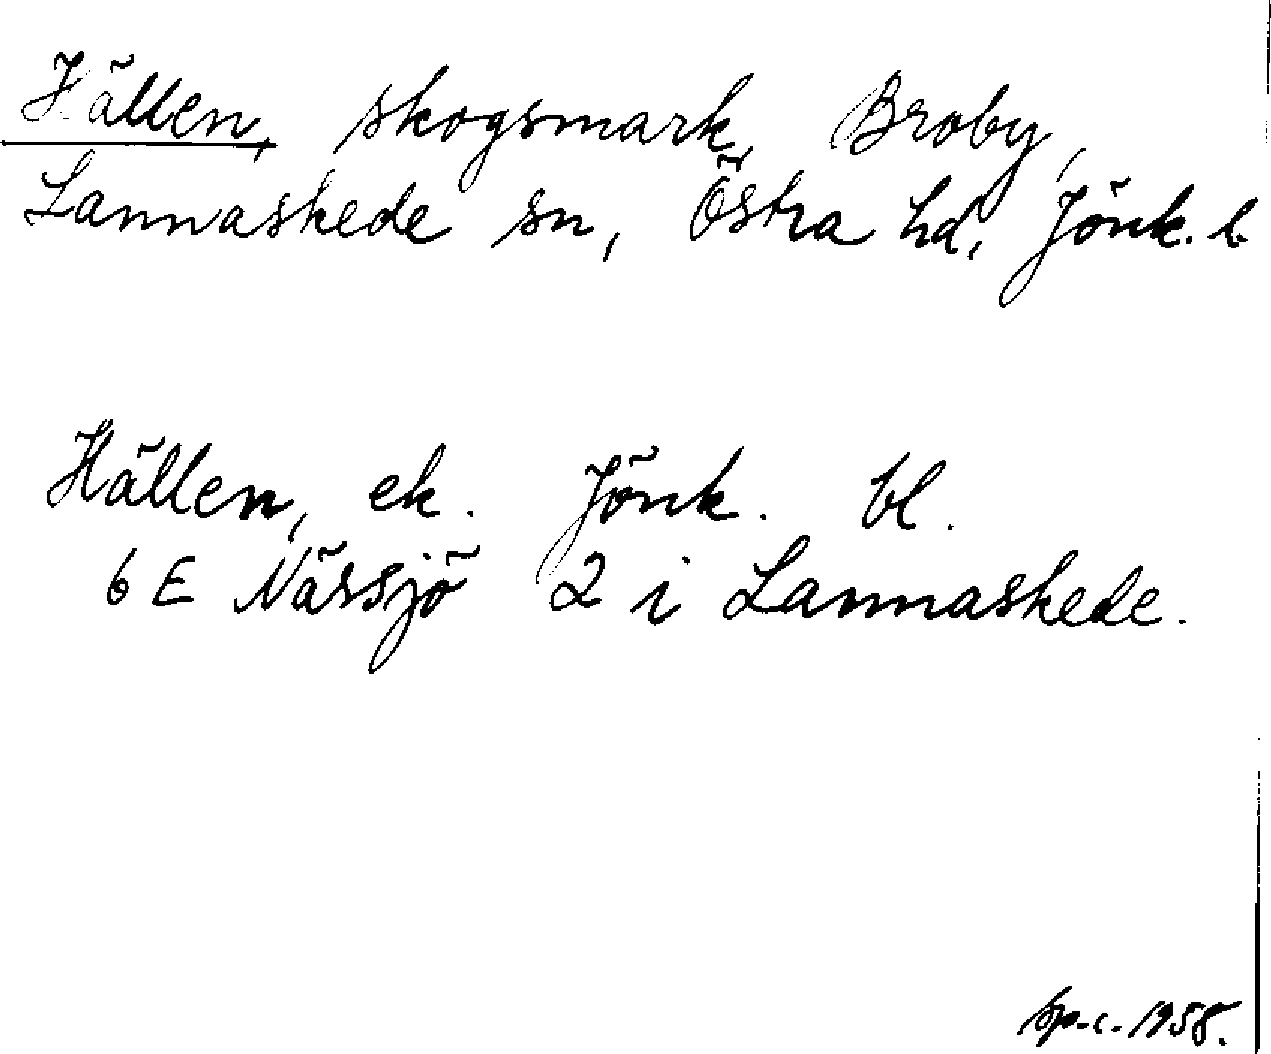 Hällen, skogsmark, Broby,
Lannaskede sn, Östra hd, Jönk. l.
Hällen, ek. Jönk. bl.
6 E Nässjö 2 i Lannaskede.
Sp.c. 1958.